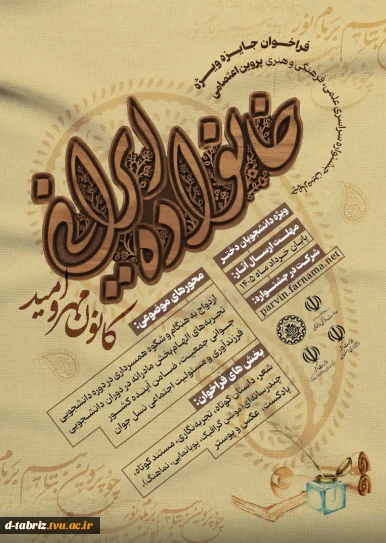 فراخوان جایزه ویژه
جشنواره سراسری علمی، فرهنگی و هنری پروین اعتصامی
خانواده ایرانی
کانون مهر و امید
ویژه دانشجویان دختر
مهلت ارسال آثار:
پایان خرداد ماه ۱۴۰۵
شرکت در جشنواره:
parvin-farnama.net
محورهای موضوعی:
ازدواج به هنگام و شکوه همسرداری در دوره دانشجویی
تجربه‌های الهام‌بخش مادرانه در دوران دانشجویی
جوانی جمعیت، ضامن آینده کشور
فرزندآوری و مسئولیت اجتماعی نسل جوان
بخش های فراخوان:
شعر، داستان کوتاه، تجربه‌نگاری، مستند کوتاه،
چندرسانه‌ای (موشن گرافیک، پویانمایی، نماهنگ)،
پادکست، عکس و پوستر
d-tabriz.tvu.ac.ir